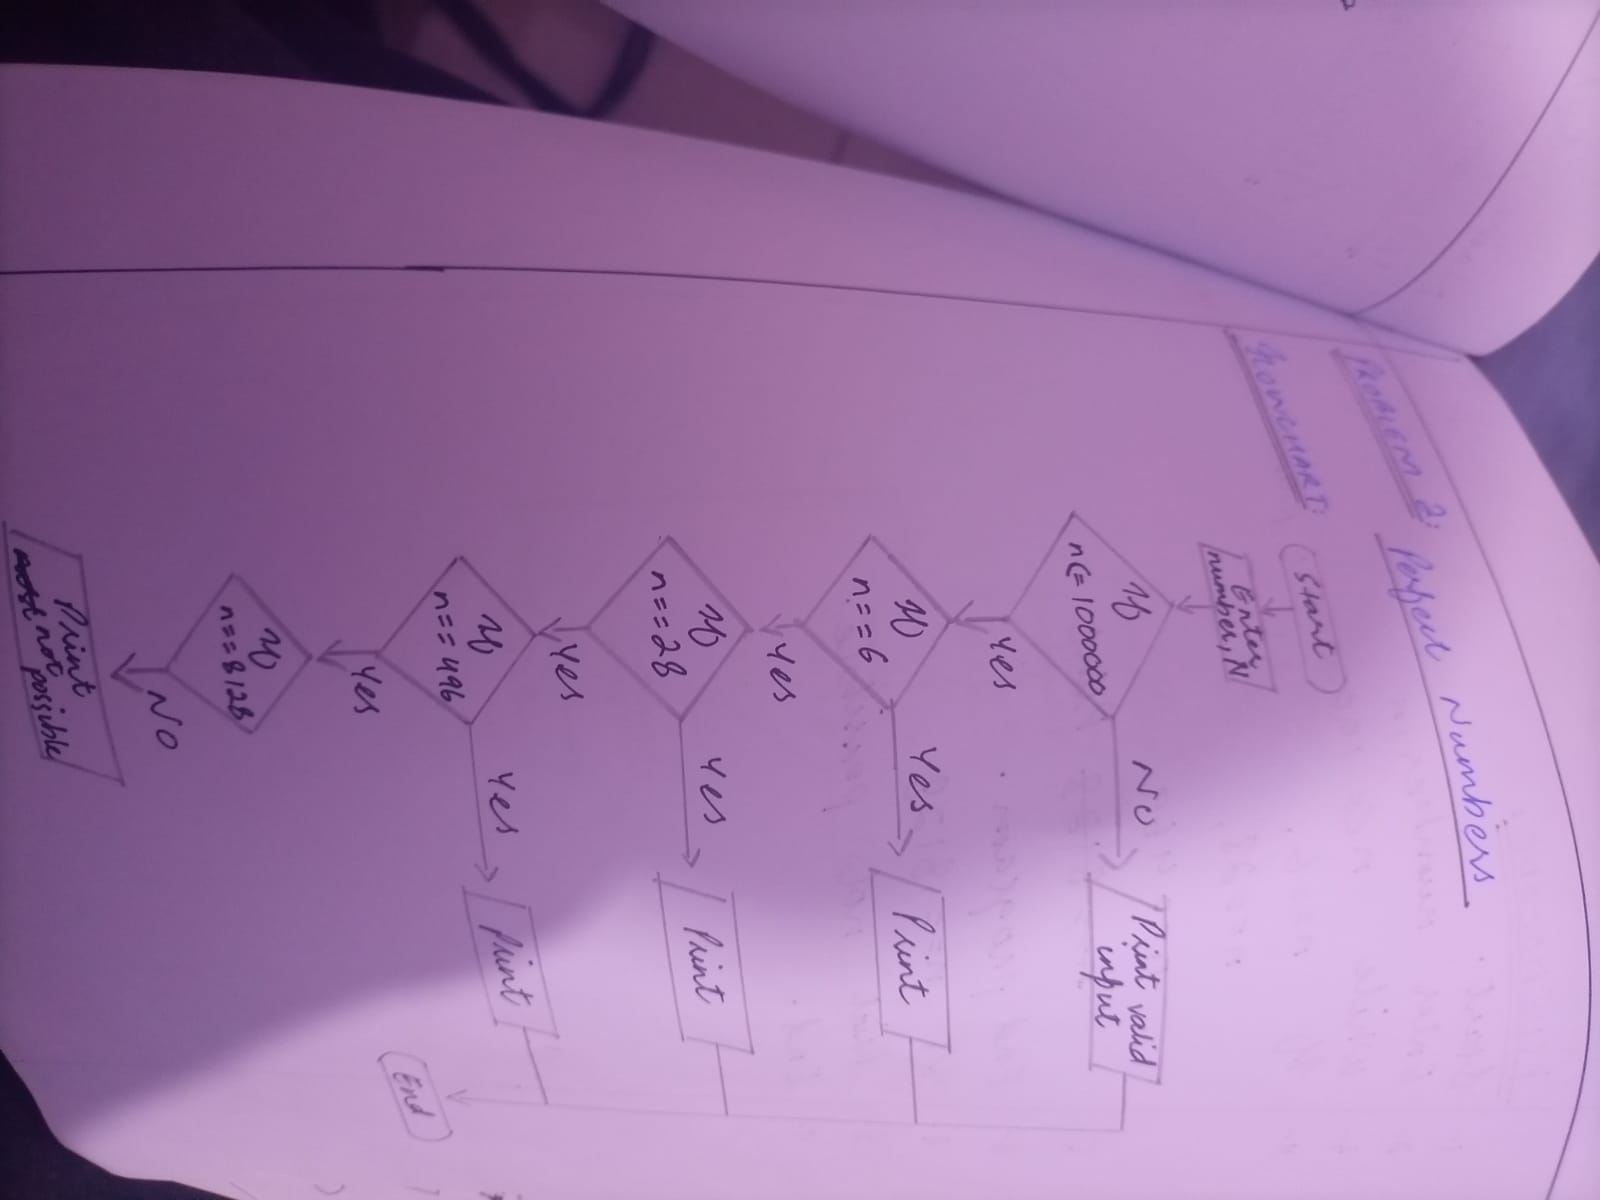 PROBLEM 2: Perfect Numbers
FLOWCHART:
Start
Enter
number, N
If
n<=1000000
No
Print valid
input
Yes
If
n==6
Yes
Print
Yes
If
n==28
Yes
Print
Yes
If
n==496
Yes
Print
Yes
If
n==8128
No
Print
not possible
End